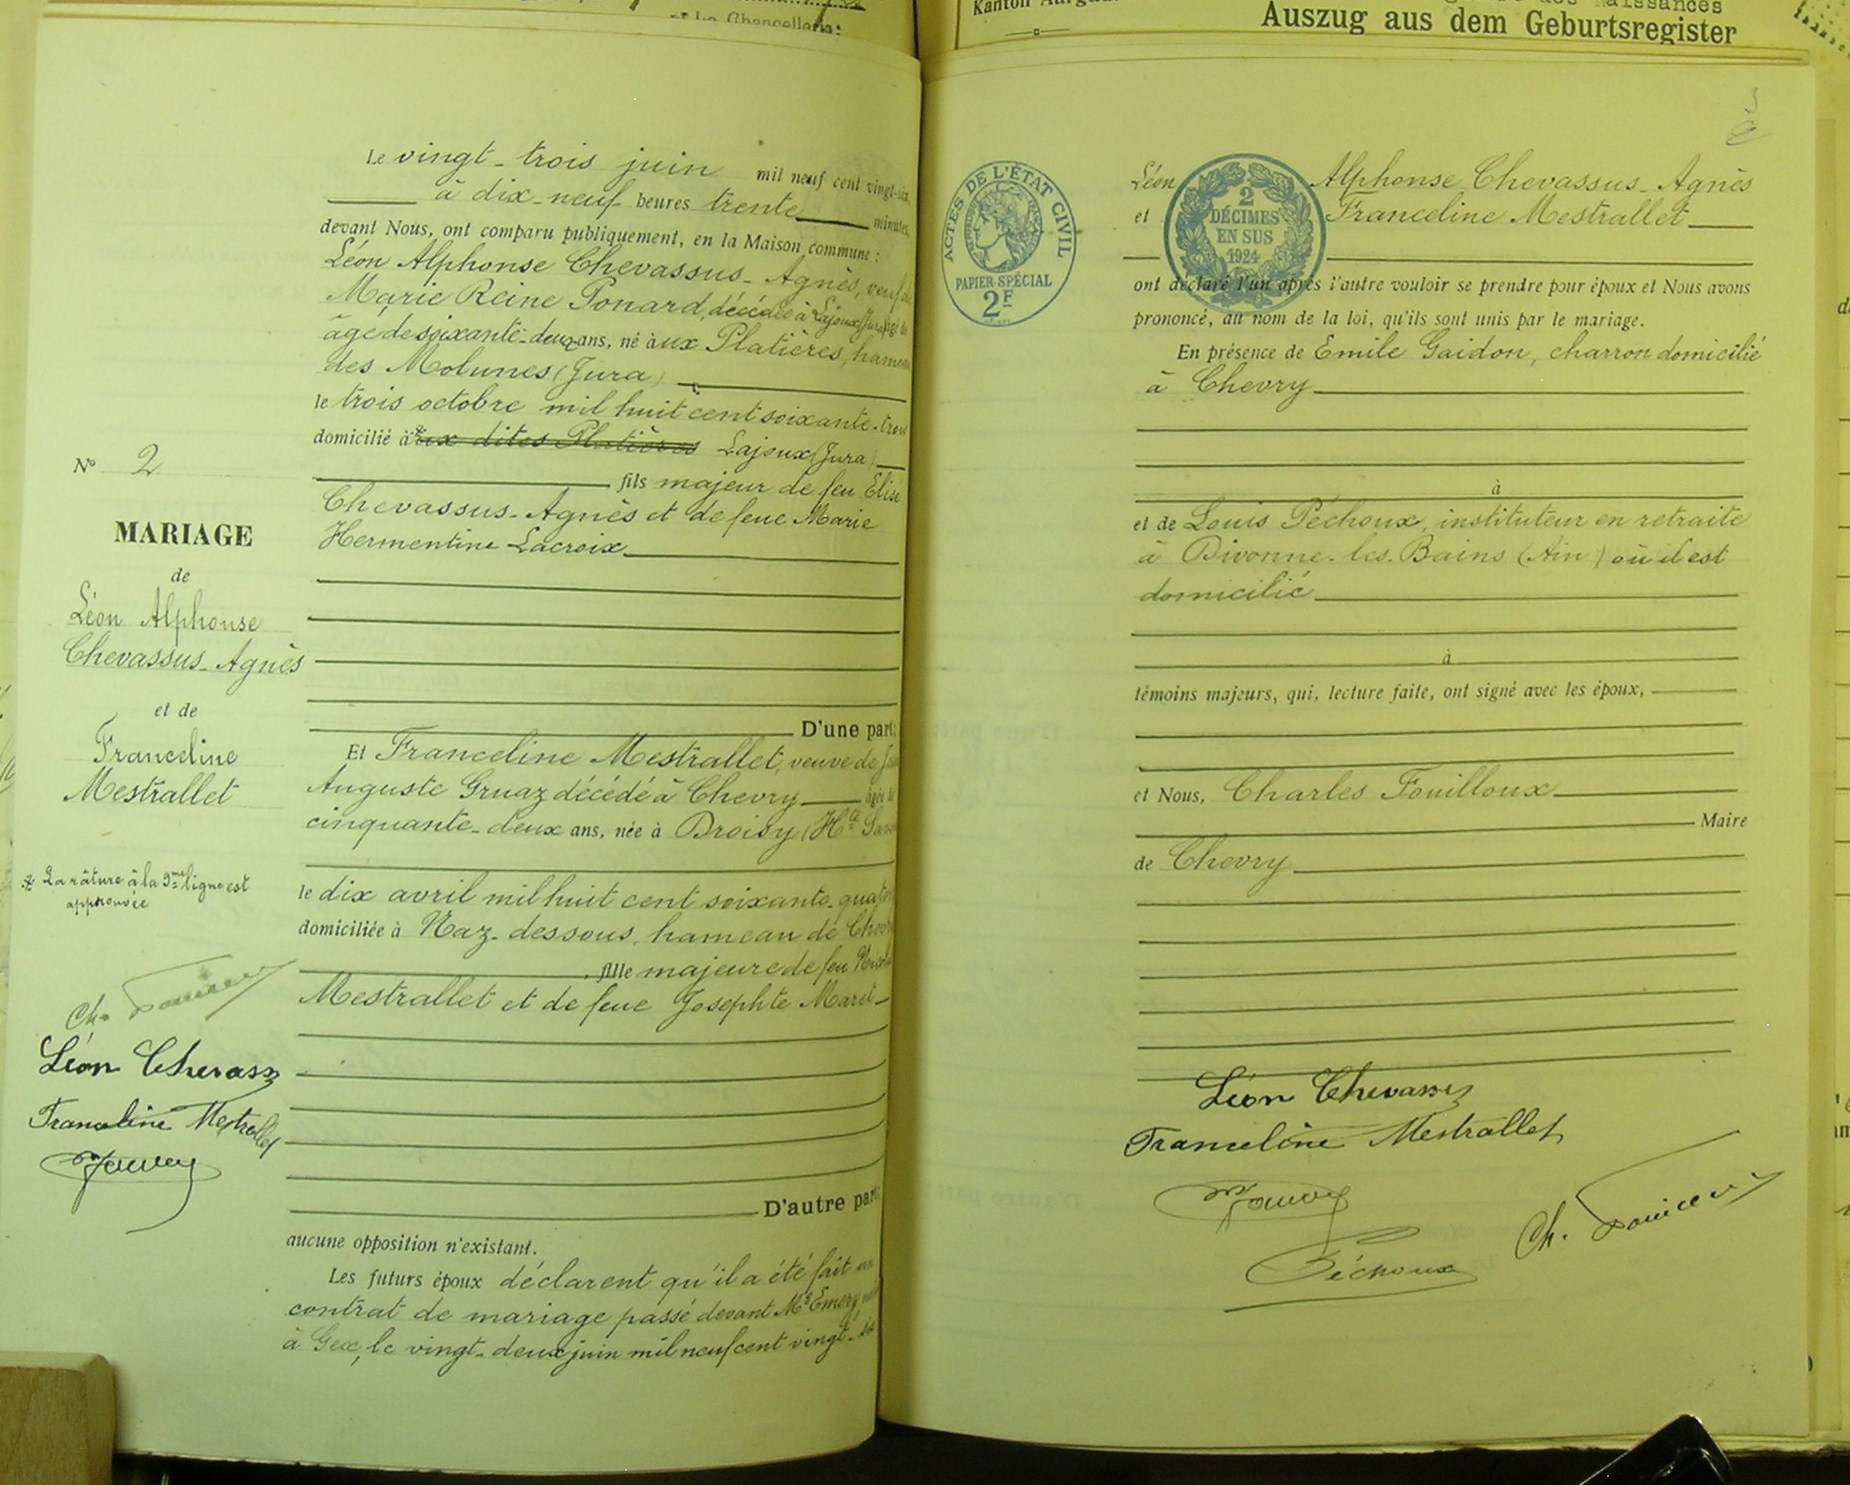 et La Chancellerie:
Kanton Aargau
des Naissances
Auszug aus dem Geburtsregister
Nº 2
MARIAGE
de
Léon Alphonse
Chevassus-Agnès
et de
Franceline
Mestrallet
* La râture à la 9me ligne est
approuvée
Léon Chevassus
Franceline Mestrallet
Le vingt-trois juin mil neuf cent vingt-six
à dix-neuf heures trente minutes,
devant Nous, ont comparu publiquement, en la Maison commune :
Léon Alphonse Chevassus-Agnès, veuf de
Marie Reine Ponard, décédée à Lajoux (Jura) âgé de
âge de soixante-deux ans, né à ux Platières, hameau
des Molunes (Jura)
le trois octobre mil huit cent soixante-trois
domicilié à * ux dites Platières Lajoux (Jura)
fils majeur de feu Elisé
Chevassus-Agnès et de feue Marie
Hermentine Lacroix
D'une part;
Et Franceline Mestrallet, veuve de
Auguste Gruaz décédé à Chevry âgée de
cinquante-deux ans, née à Droisy (Hte Savoie
le dix avril mil huit cent soixante-quatorze
domiciliée à Naz-dessous, hameau de Chevry
fille majeure de feu Nicolas
Mestrallet et de feue Josephte Maret
D'autre part;
aucune opposition n'existant.
Les futurs époux déclarent qu'il a été fait un
contrat de mariage passé devant Me Emery
à Gex, le vingt-deux juin mil neuf cent vingt-six
ACTES DE L'ÉTAT CIVIL
PAPIER SPÉCIAL
2F
2
DÉCIMES
EN SUS
1924
Léon Alphonse Chevassus-Agnès
et Franceline Mestrallet
ont déclaré l'un après l'autre vouloir se prendre pour époux et Nous avons
prononcé, au nom de la loi, qu'ils sont unis par le mariage.
En présence de Emile Gaidon, charron domicilié
à Chevry
à
et de Louis Péchoux, instituteur en retraite
à Divonne-les-Bains (Ain) où il est
domicilié
à
témoins majeurs, qui, lecture faite, ont signé avec les époux,
et Nous, Charles Fouilloux
Maire
de Chevry
Léon Chevassus
Franceline Mestrallet
Péchoux